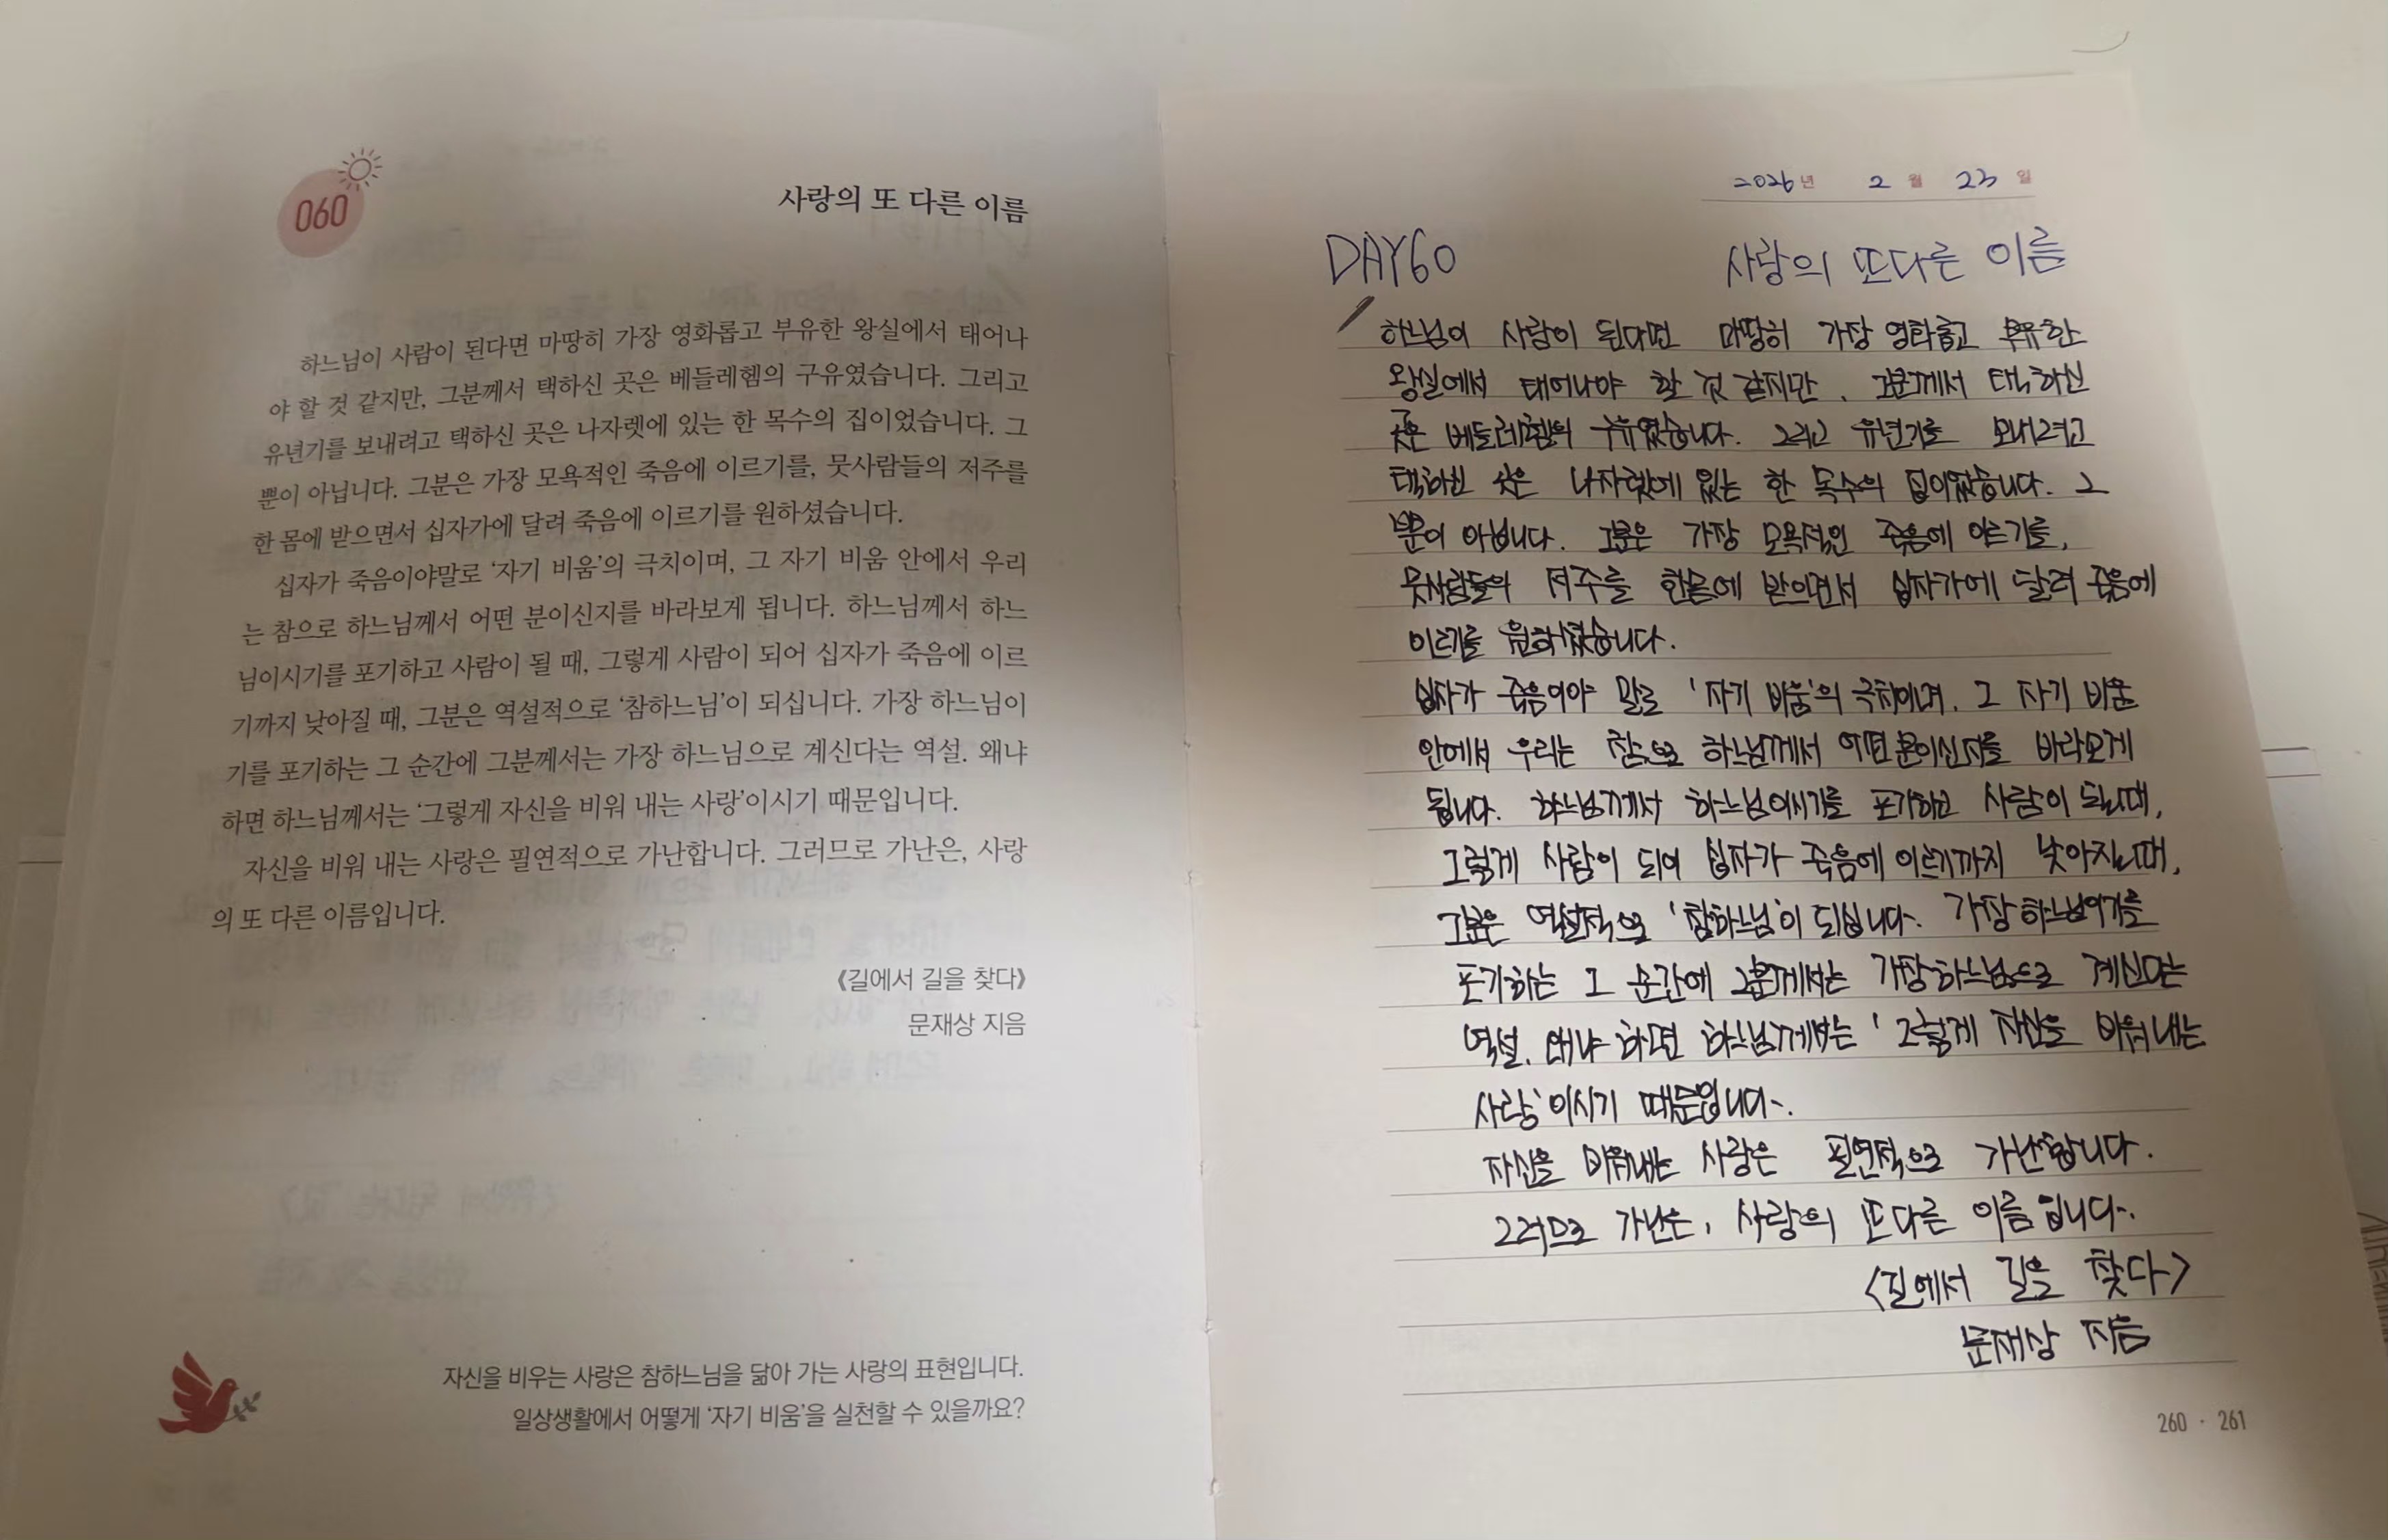 060
사랑의 또 다른 이름
하느님이 사람이 된다면 마땅히 가장 영화롭고 부유한 왕실에서 태어나
야 할 것 같지만, 그분께서 택하신 곳은 베들레헴의 구유였습니다. 그리고
유년기를 보내려고 택하신 곳은 나자렛에 있는 한 목수의 집이었습니다. 그
뿐이 아닙니다. 그분은 가장 모욕적인 죽음에 이르기를, 뭇사람들의 저주를
한 몸에 받으면서 십자가에 달려 죽음에 이르기를 원하셨습니다.
십자가 죽음이야말로 ‘자기 비움’의 극치이며, 그 자기 비움 안에서 우리
는 참으로 하느님께서 어떤 분이신지를 바라보게 됩니다. 하느님께서 하느
님이시기를 포기하고 사람이 될 때, 그렇게 사람이 되어 십자가 죽음에 이르
기까지 낮아질 때, 그분은 역설적으로 ‘참하느님’이 되십니다. 가장 하느님이
기를 포기하는 그 순간에 그분께서는 가장 하느님으로 계신다는 역설. 왜냐
하면 하느님께서는 ‘그렇게 자신을 비워 내는 사랑’이시기 때문입니다.
자신을 비워 내는 사랑은 필연적으로 가난합니다. 그러므로 가난은, 사랑
의 또 다른 이름입니다.
《길에서 길을 찾다》
문재상 지음
자신을 비우는 사랑은 참하느님을 닮아 가는 사랑의 표현입니다.
일상생활에서 어떻게 ‘자기 비움’을 실천할 수 있을까요?
2026년 2월 23일
DAY60 사랑의 또다른 이름
하느님이 사람이 된다면 마땅히 가장 영화롭고 부유한
왕실에서 태어나야 할 것 같지만, 그분께서 택하신
곳은 베들레헴의 구유였습니다. 그리고 유년기를 보내려고
택하신 곳은 나자렛에 있는 한 목수의 집이었습니다. 그
뿐이 아닙니다. 그분은 가장 모욕적인 죽음에 이르기를,
뭇사람들의 저주를 한몸에 받으면서 십자가에 달려 죽음에
이르기를 원하셨습니다.
십자가 죽음이야 말로 '자기 비움'의 극치이며, 그 자기 비움
안에서 우리는 참으로 하느님께서 어떤 분이신지를 바라보게
됩니다. 하느님께서 하느님이시기를 포기하고 사람이 될때,
그렇게 사람이 되어 십자가 죽음에 이르기까지 낮아질때,
그분은 역설적으로 '참하느님'이 되십니다. 가장하느님이기를
포기하는 그 순간에 그분께서는 가장하느님으로 계신다는
역설. 왜냐 하면 하느님께서는 '그렇게 자신을 비워내는
사랑'이시기 때문입니다.
자신을 비워내는 사랑은 필연적으로 가난합니다.
그러므로 가난은, 사랑의 또다른 이름입니다.
<길에서 길을 찾다>
문재상 지음
260 · 261